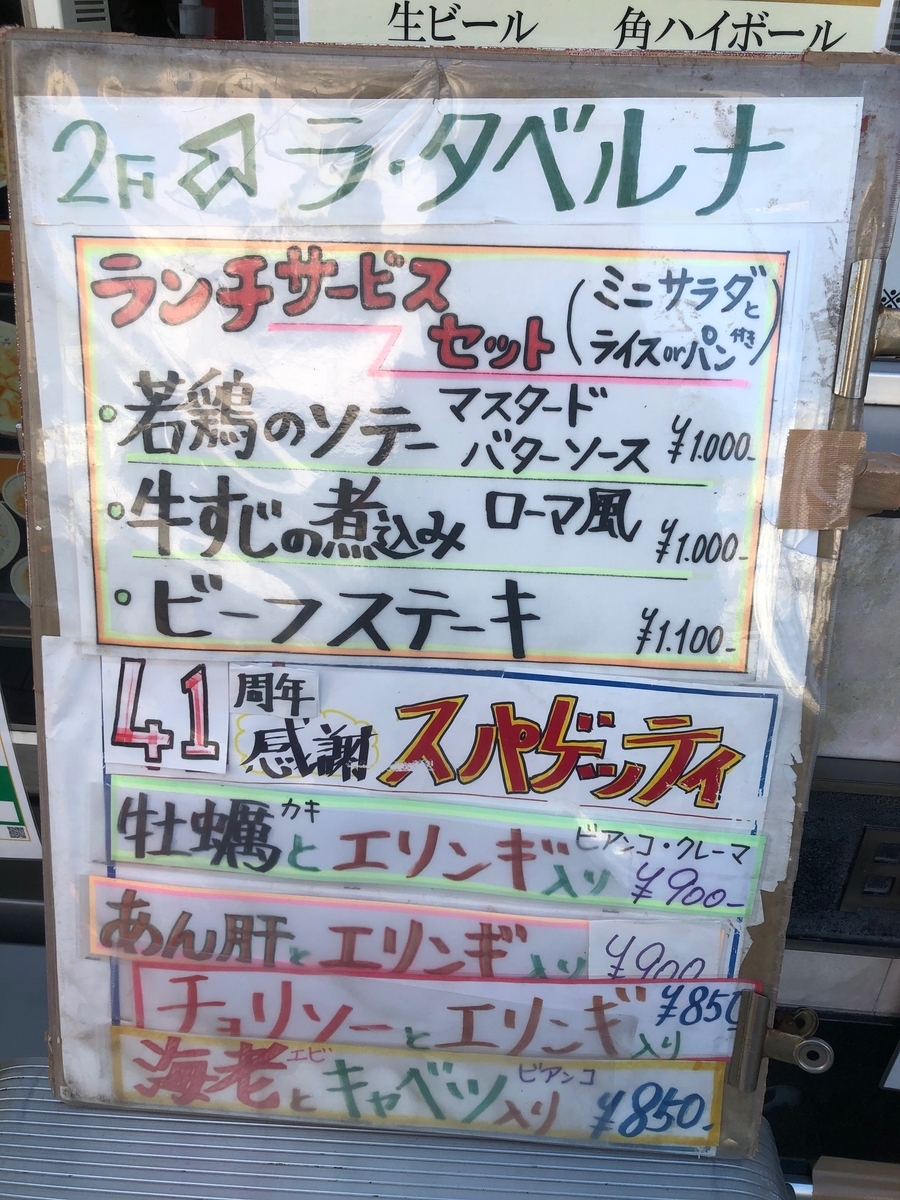 生ビール 角ハイボール
2F ラ・タベルナ
ランチサービス
セット
(ミニサラダと
ライスorパン付き)
若鶏のソテー マスタード
バターソース ¥1.000-
牛すじの煮込み ローマ風 ¥1.000-
ビーフステーキ ¥1.100-
41周年
感謝 スパゲッティ
牡蠣カキとエリンギ入り ビアンコ・クレーマ ¥900-
あん肝とエリンギ入り ¥900
チョリソーとエリンギ入り ¥850
海老エビとキャベツ入り ビアンコ ¥850-